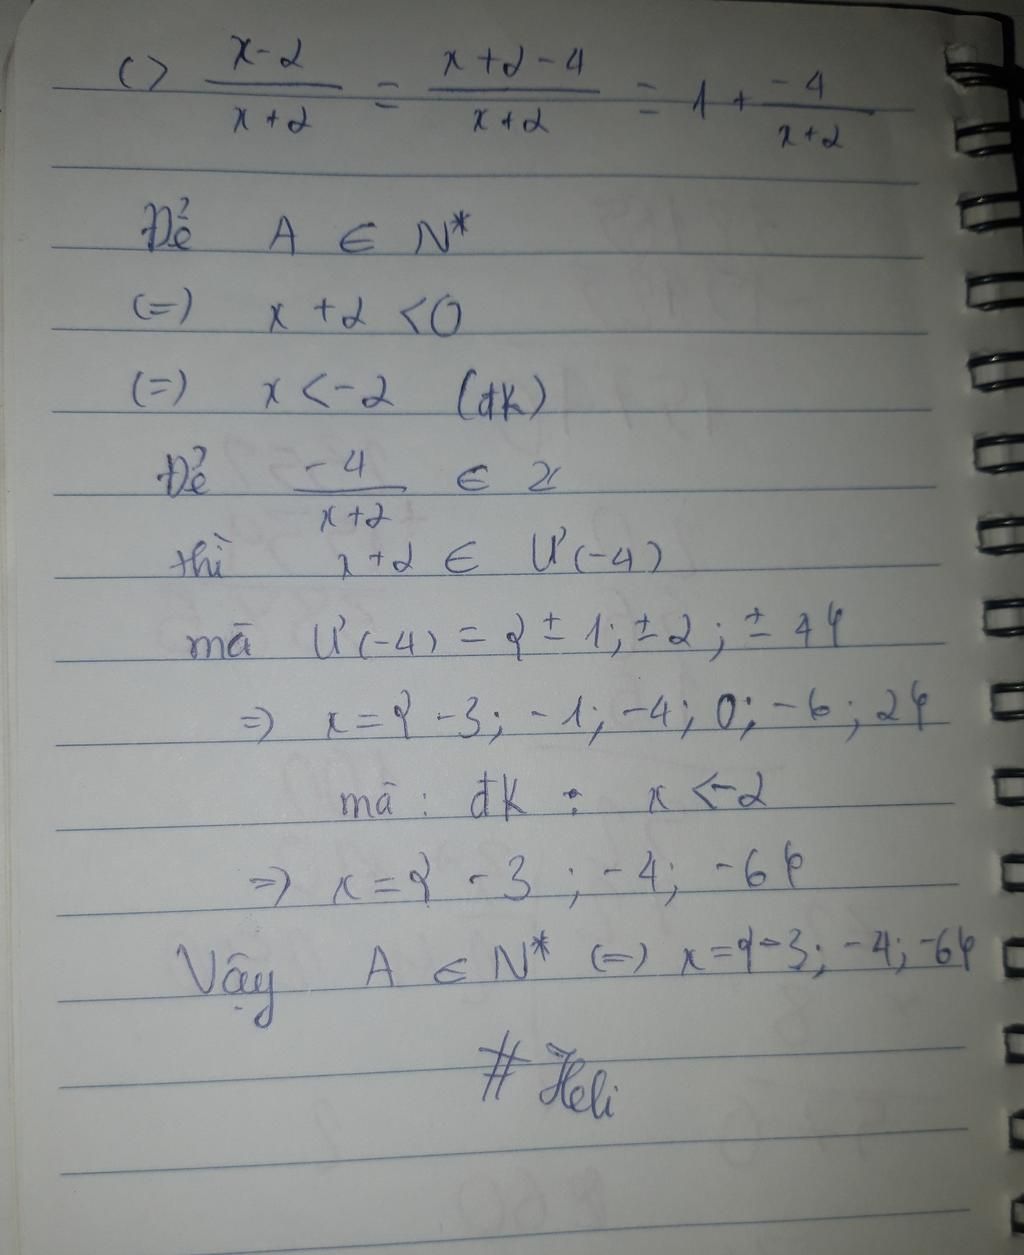 c) x-2/x+2 = x+2-4/x+2 = 1 + -4/x+2
Để A ∈ N*
(=) x+2 <0
(=) x <-2 (đk)
Để -4/x+2 ∈ Z
thì x+2 ∈ Ư(-4)
mà Ư(-4) = {±1; ±2; ±4}
=> x={-3; -1; -4; 0; -6; 2}
mà : đk : x <-2
=> x={-3; -4; -6}
Vậy A ∈ N* (=) x={-3; -4; -6}
# Heli